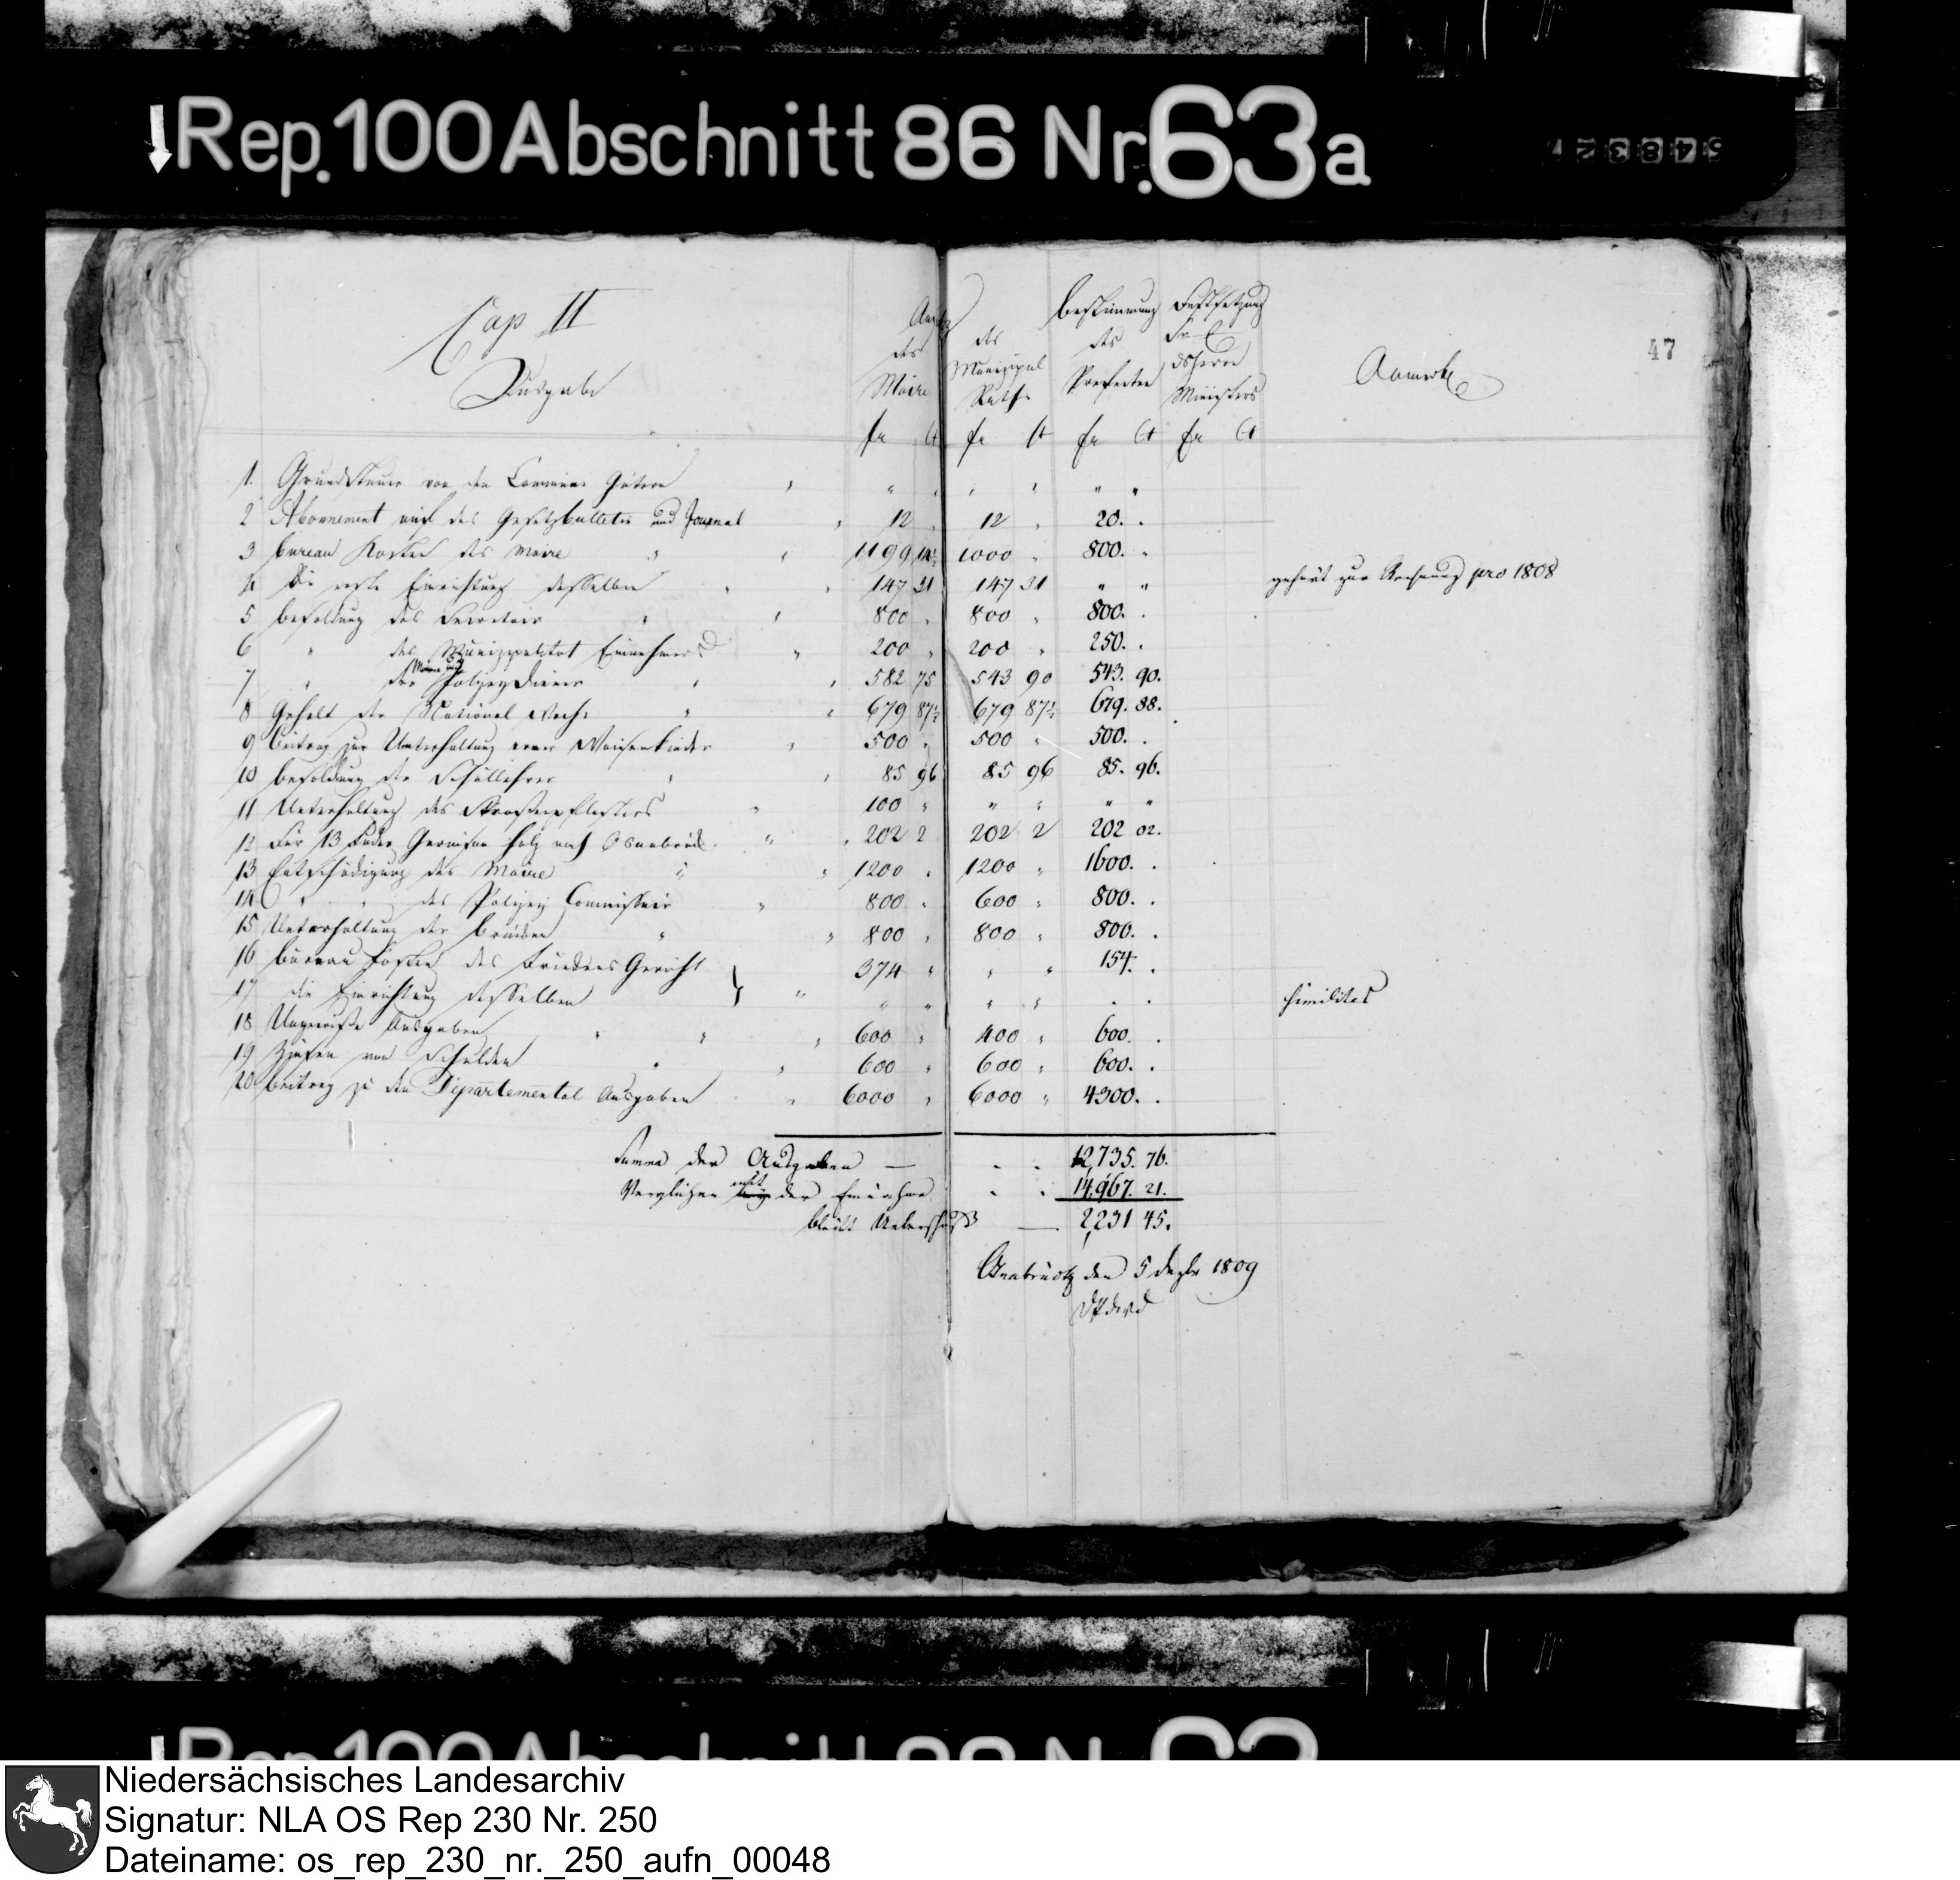 Rep. 100 Abschnitt 86 Nr. 63a
54832
47
Cap II
Ausgabe
des Maire
des Munizipal Raths
Bestimmung des Praefecten
Festsetzung Sr E des Herrn Ministers
Anmerk
fr ct fr ct fr ct fr ct
1. Grundsteuer von den Commune Gütern " " " " " "
2 Abonnement auf das Gesetzbulletin und Journal 12 " 12 " 20. .
3 Bureau Kosten des Maire 1199 1000 " 800. .
4 Die erste Einrichtung desselben 147 31 147 31 " " gehört zur Rechnung pro 1808
5 Besoldung des Secretair 800 " 800 " 800. .
6 " des Munizipalitat Einnehmers 200 " 200 " 250. .
7 " der Polizey Diener 582 75 543 90 543. 90.
8 Gehalt der National Wache 679 87½ 679 87½ 679. 88.
9 Beitrag zur Unterhaltung armer Waisenkinder 500 " 500 " 500. .
10 Besoldung der Schullehrer 85 96 85 96 85. 96.
11 Unterhaltung des Strassenpflasters 100 " " " " "
12 Für 13 Fuder Garnison Holz nach Osnabrück 202 2 202 2 202 02.
13 Entschädigung des Maire 1200 " 1200 " 1600. .
14 " " des Polizey Commissair 800 " 600 " 800. .
15 Unterhaltung der Brücken 800 " 800 " 800. .
16 Bureau Kosten des Friedens Gericht 374 " " " 154. .
17 die Einrichtung desselben } " " " " " . . similiter
18 Ungewisse Ausgaben 600 " 400 " 600. .
19 Zinsen von Schulden 600 " 600 " 600. .
20 Beitrag zu den Departemental Ausgaben 6000 " 6000 " 4300. .
Summa der Ausgaben — . . 12,735. 76.
Verglichen mit der Einnahme . . 14,967. 21.
bleibt Ueberschuß — 2,231 45.
Osnabrück den 5 Dezbr 1809
Rep. 100 Abschnitt 86 N 63
Niedersächsisches Landesarchiv
Signatur: NLA OS Rep 230 Nr. 250
Dateiname: os_rep_230_nr._250_aufn_00048